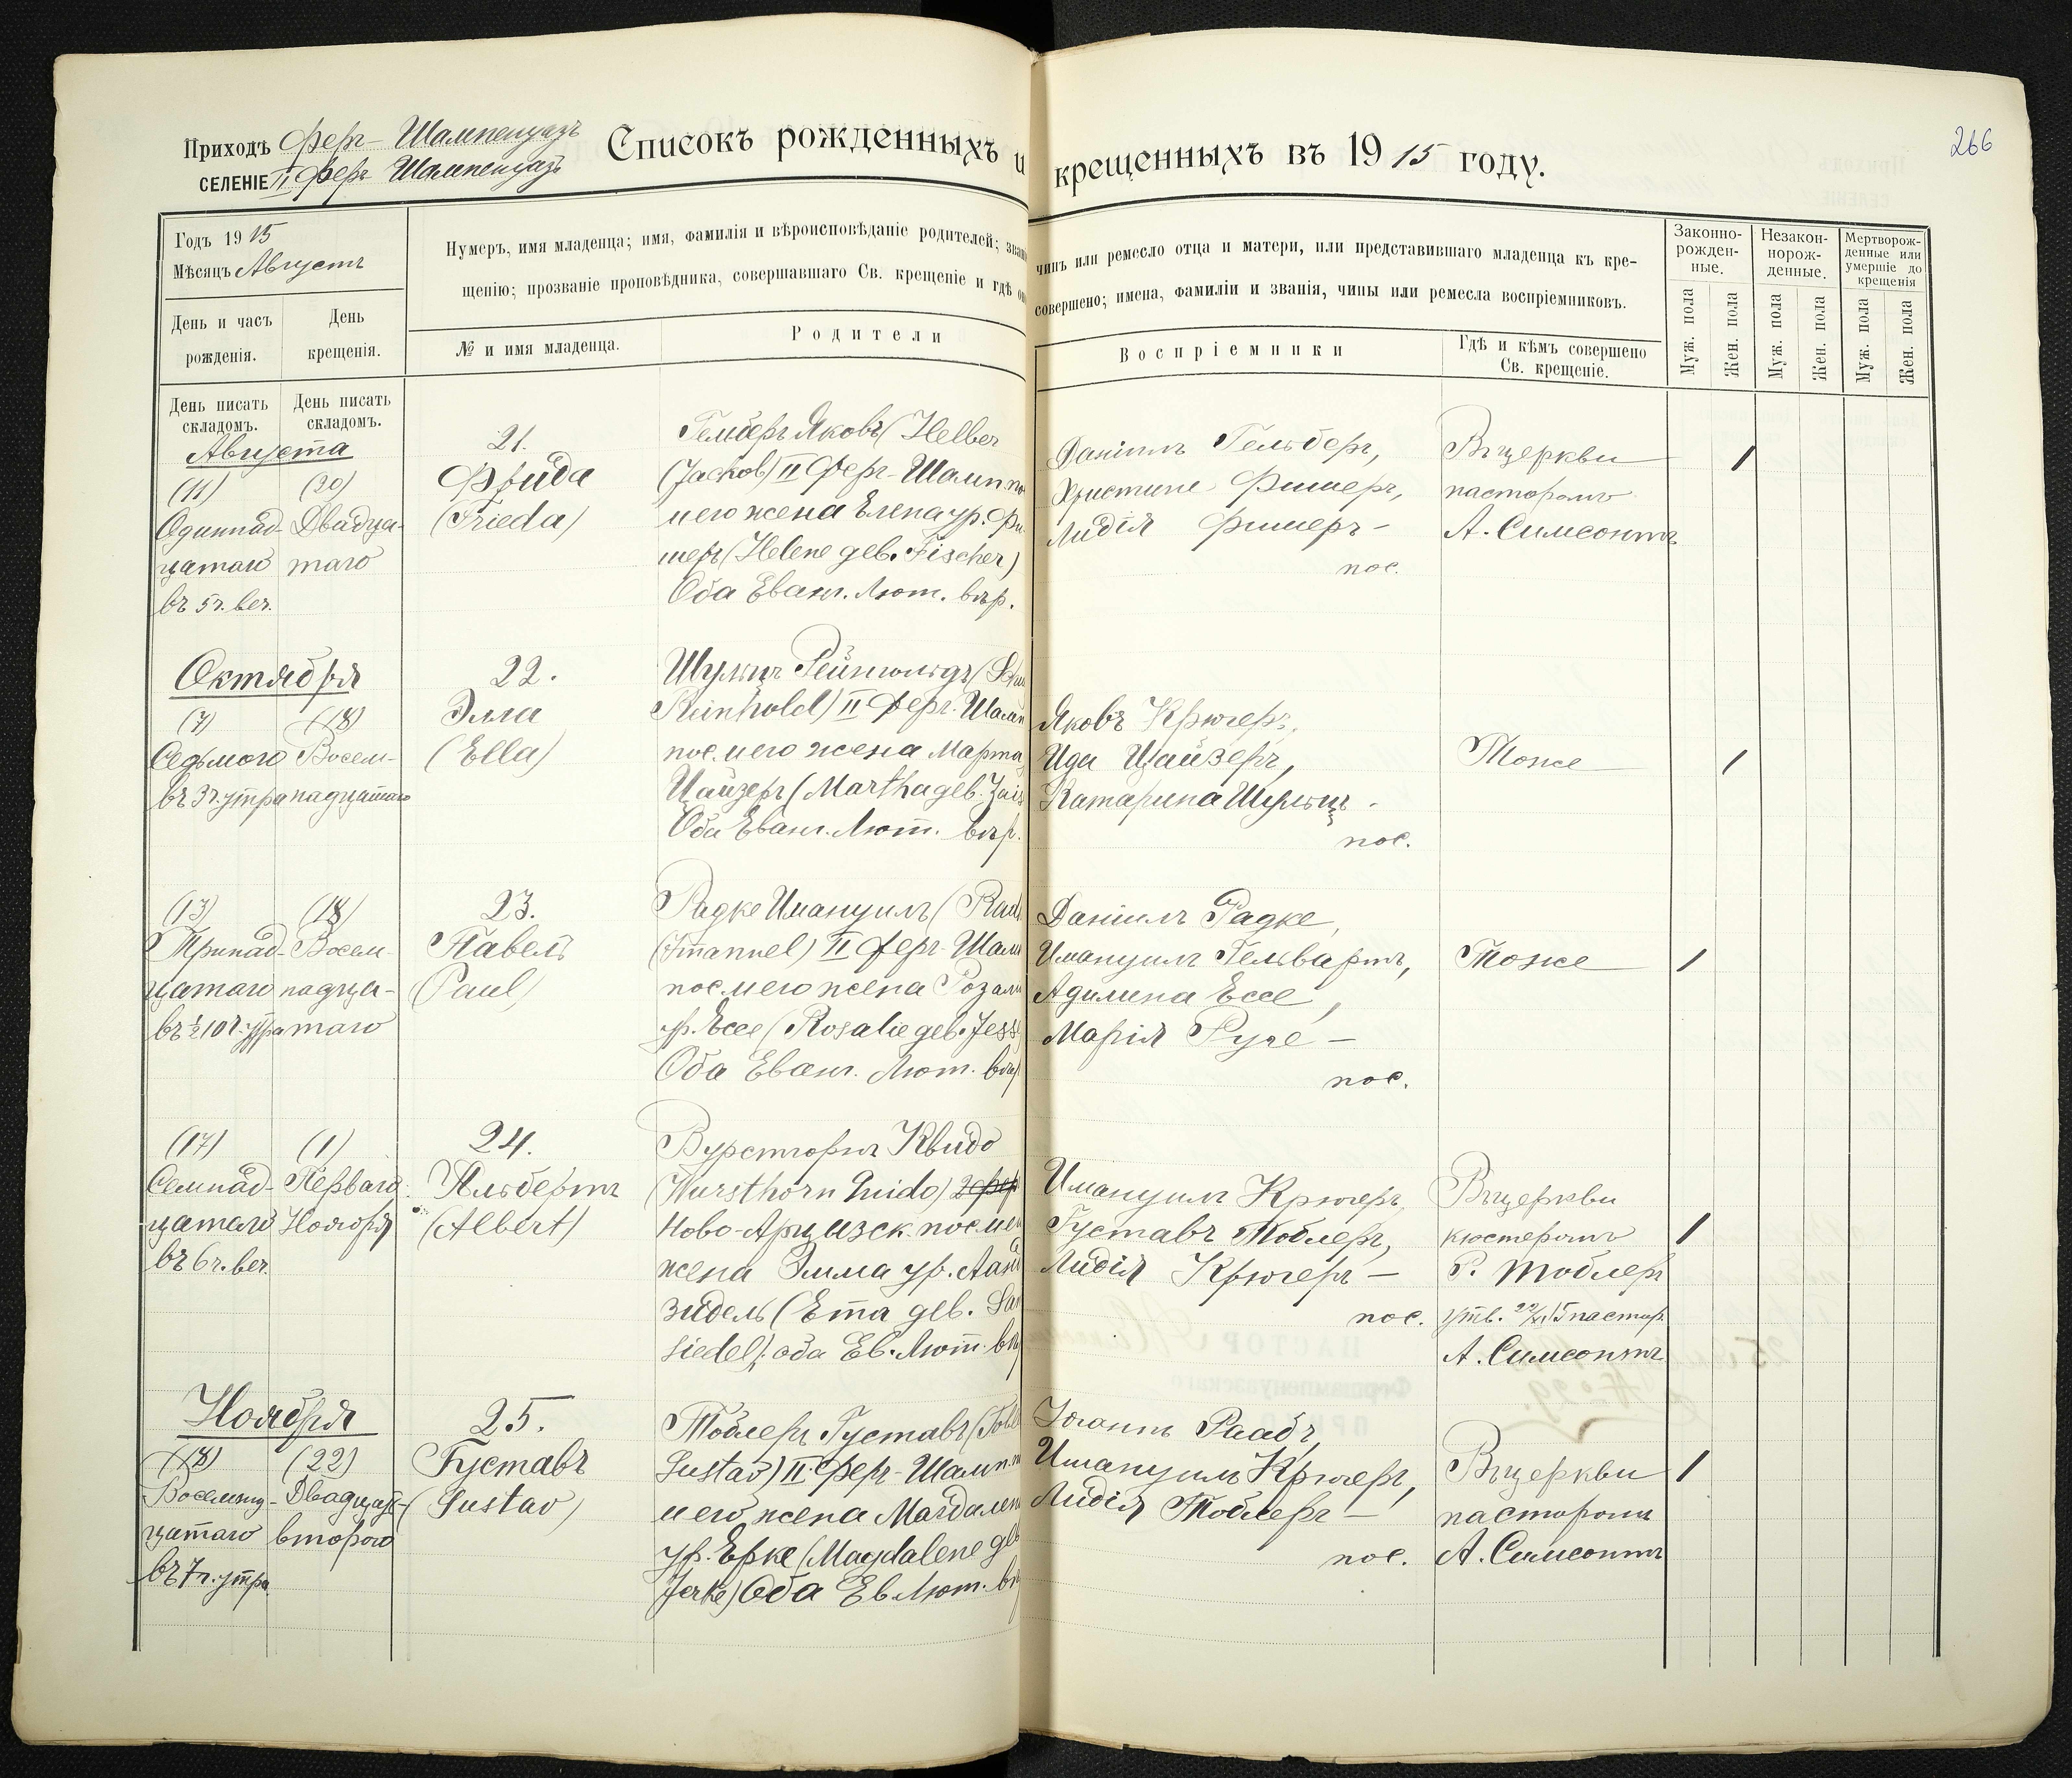 266
Приходъ Фер-Шампенуазъ
СЕЛЕНІЕ II Фер-Шампенуазъ
Списокъ рожденныхъ и крещенныхъ въ 1915 году.
Годъ 1915
Мѣсяцъ Августъ
День и часъ рожденія.
День крещенія.
Нумеръ, имя младенца; имя, фамилія и вѣроисповѣданіе родителей; званіе
чинъ или ремесло отца и матери, или представившаго младенца къ кре-
щенію; прозваніе проповѣдника, совершавшаго Св. крещеніе и гдѣ оно
совершено; имена, фамиліи и званія, чины или ремесла воспріемниковъ.
№ и имя младенца.
Родители
Воспріемники
Гдѣ и кѣмъ совершено
Св. крещеніе.
Законно-
рожден-
ные.
Незакон-
норож-
денные.
Мертворож-
денные или
умершіе до
крещенія
Муж. пола
Жен. пола
Муж. пола
Жен. пола
Муж. пола
Жен. пола
День писать
складомъ.
День писать
складомъ.
Августа
(11)
Одиннад-
цатаго
въ 5 ч. веч.
(20)
Двадца-
таго
21.
Фрида
(Frieda)
Гельберъ Яковъ (Helber
(Jackob) II Фер-Шамп. по
и его жена Елена ур. Фи
шеръ (Helene geb. Fischer)
Оба Еванг. Лют. вѣр.
Даніилъ Гельберъ,
Христине Фишеръ,
Лидія Фишеръ -
пос.
Въ церкви
пасторомъ
А. Симсонъ
1
Октября
(7)
Седьмого
въ 3 ч. утра
(18)
Восем-
надцатаго
22.
Элла
(Ella)
Шульцъ Рейнгольдъ (Schu
Reinhold) II Фер-Шамп
пос. и его жена Марта
Цайзеръ (Martha geb. Zais
Оба Еванг. Лют. вѣр.
Яковъ Крюгеръ,
Ида Цайзеръ,
Катарина Шульцъ -
пос.
Тоже
1
(13)
Тринад-
цатаго
въ ½10 ч. утра
(18)
Восем-
надца-
таго
23.
Павелъ
(Paul)
Радке Имануилъ (Rad
(Immanuel) II Фер-Шам
пос. и его жена Розали
ур. Ессе (Rosalie geb. Jess
Оба Еванг. Лют. вѣр
Даніилъ Радке,
Имануилъ Гельвартъ,
Аделина Ессе,
Марія Руге -
пос.
Тоже
1
(17)
Семнад-
цатаго
въ 6 ч. веч.
(1)
Перваго
Ноября
24.
Альбертъ
(Albert)
Вурстгорнъ Квидо
(Wursthorn Guido) 2 фер
Ново-Арцизск. пос. и е
жена Эмма ур. Ланд
зидель (Ema geb. Lan
siedel); оба Ев. Лют. вѣ
Имануилъ Крюгеръ,
Густавъ Тоблеръ,
Лидія Крюгеръ -
пос.
Въ церкви
кюстеромъ
Р. Тоблеръ
утв. 22/XI 15 пастор.
А. Симсонъ
1
Ноября
(18)
Восемнад-
цатаго
въ 7 ч. утра
(22)
Двадцать
второго
25.
Густавъ
(Gustav)
Тоблеръ Густавъ (Tobl
Gustav) II Фер-Шамп. п
и его жена Магдален
ур. Ерке (Magdalene geb
Jerke) Оба Ев. Лют. вѣ
Іоганъ Раабъ,
Имануилъ Крюгеръ,
Лидія Тоблеръ -
пос.
Въ церкви
пасторомъ
А. Симсонъ
1